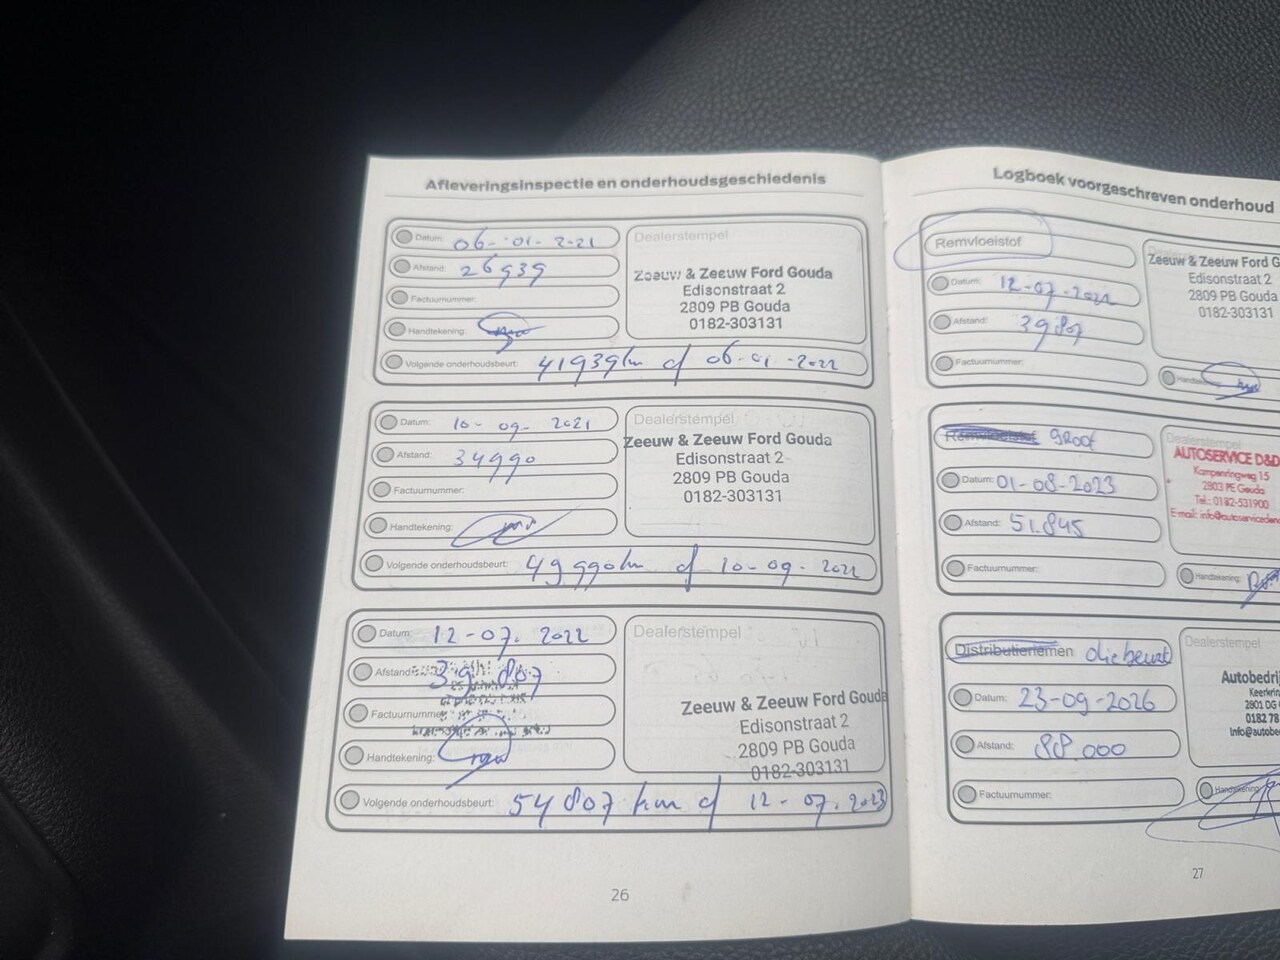 Afleveringsinspectie en onderhoudsgeschiedenis
Datum: 06-01-2021
Afstand: 26939
Factuurnummer:
Handtekening:
Dealerstempel
Zeeuw & Zeeuw Ford Gouda
Edisonstraat 2
2809 PB Gouda
0182-303131
Volgende onderhoudsbeurt: 41939km of 06-01-2022
Datum: 10-09-2021
Afstand: 34990
Factuurnummer:
Handtekening:
Dealerstempel
Zeeuw & Zeeuw Ford Gouda
Edisonstraat 2
2809 PB Gouda
0182-303131
Volgende onderhoudsbeurt: 49990km of 10-09-2022
Datum: 12-07-2022
Afstand: 39.807
Factuurnummer
Handtekening:
Dealerstempel
Zeeuw & Zeeuw Ford Gouda
Edisonstraat 2
2809 PB Gouda
0182-303131
Volgende onderhoudsbeurt: 54807 km of 12-07-2023
26
Logboek voorgeschreven onderhoud
Remvloeistof
Datum: 12-07-2022
Afstand: 39807
Factuurnummer:
Zeeuw & Zeeuw Ford G
Edisonstraat 2
2809 PB Gouda
0182-303131
Remvloeistof groot
Datum: 01-08-2023
Afstand: 51.845
Factuurnummer:
Dealerstempel
AUTOSERVICE D&D
Kampenringweg 15
2803 PE Gouda
Tel.: 0182-531900
E-mail: info@autoserviceden
Handtekening:
Distributieriemen oliebeurt
Datum: 23-09-2026
Afstand: 88.000
Factuurnummer:
Dealerstempel
Autobedrij
2801 DG
0182 78
Info@autobe
27